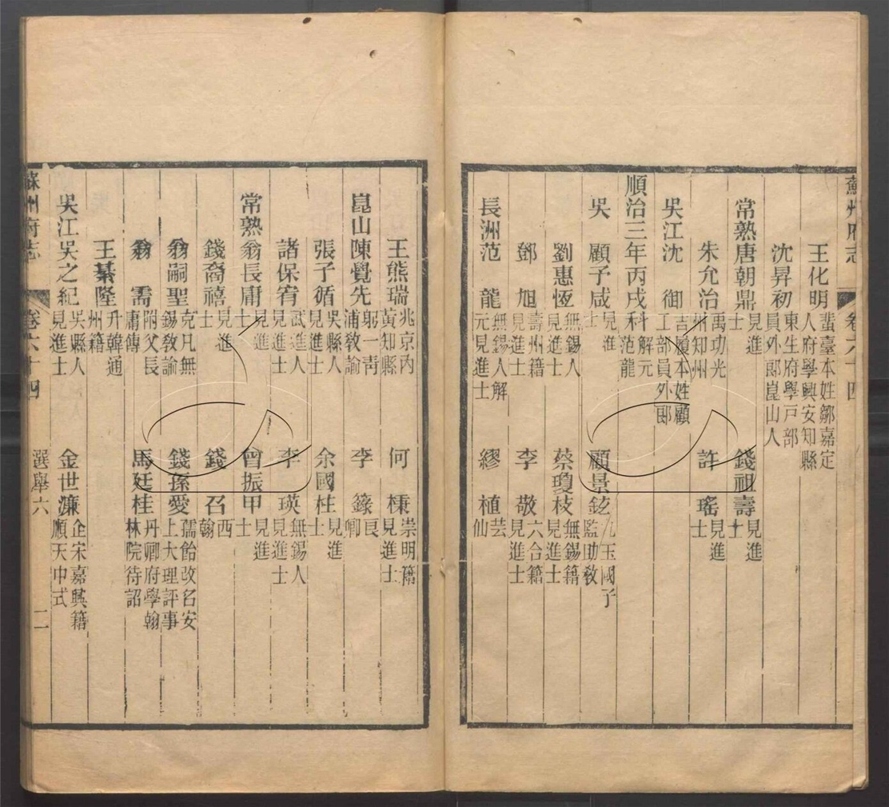 蘇州府志 卷六十四
王化明 蜚臺本姓鄒嘉定人府學興安知縣
沈昇初 東生府學戸部員外郎崑山人
常熟唐朝鼎 見進士 錢祖壽 見進士
朱允治 禹功光州知州 許瑤 見進士
吳江沈御 吉履本姓顧工部員外郎
順治三年丙戌科 解元范龍
吳 顧子咸 見進士 顧景鈫 九玉國子監助教
劉惠恆 無錫人見進士 蔡瓊枝 無錫籍見進士
鄧旭 壽州籍見進士 李敬 六合籍見進士
長洲范龍 無錫人解元見進士 繆植 芸仙
王熊瑞 兆京內黃知縣 何棅 崇明籍見進士
崑山陳覺先 躬一靑浦敎諭 李籙 艮卿
張子循 吳縣人見進士 余國柱 見進士
諸保宥 武進人見進士 李瑛 無錫人見進士
常熟翁長庸 見進士 曾振甲 見進士
錢裔禧 見進士 錢召 西翰
翁嗣聖 克凡無錫敎諭 錢孫愛 孺飴改名安上大理評事
翁需 附父長庸傳 馬廷桂 丹卿府學翰林院待詔
王綦隆 升韓通州籍
吳江吳之紀 吳縣人見進士 金世濂 企宋嘉興籍順天中式
蘇州府志 卷六十四 選舉六 二